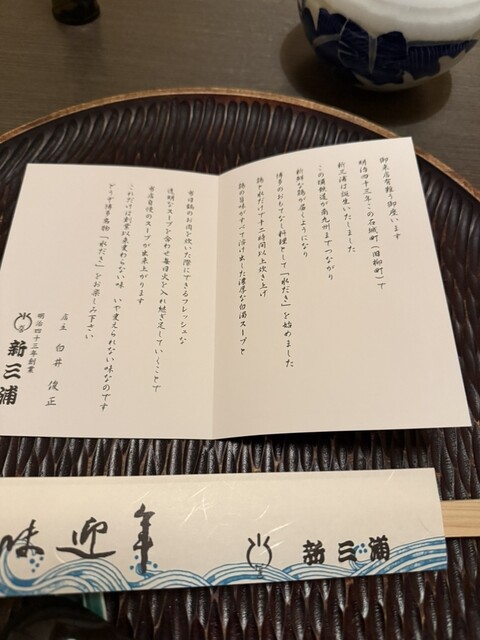 御来店有難う御座います
明治四十三年この石城町（旧柳町）で
新三浦は誕生いたしました
この頃鉄道が南九州までつながり
新鮮な鶏が届くようになり
博多のおもてなし料理として「水だき」を始めました
鶏と水だけで十二時間以上炊き上げ
鶏の旨味がすべて溶け出した濃厚な白濁スープと
当日鶏のお肉を炊いた際にできるフレッシュな
透明なスープを合わせ毎日火を入れ継ぎ足していくことで
当店自慢のスープが出来上がります
これだけは創業以来変わらない味 いや変えられない味なのです
どうぞ博多名物「水だき」をお楽しみ下さい
店主 白井 俊正
明治四十三年創業
新三浦
味迎年
新三浦